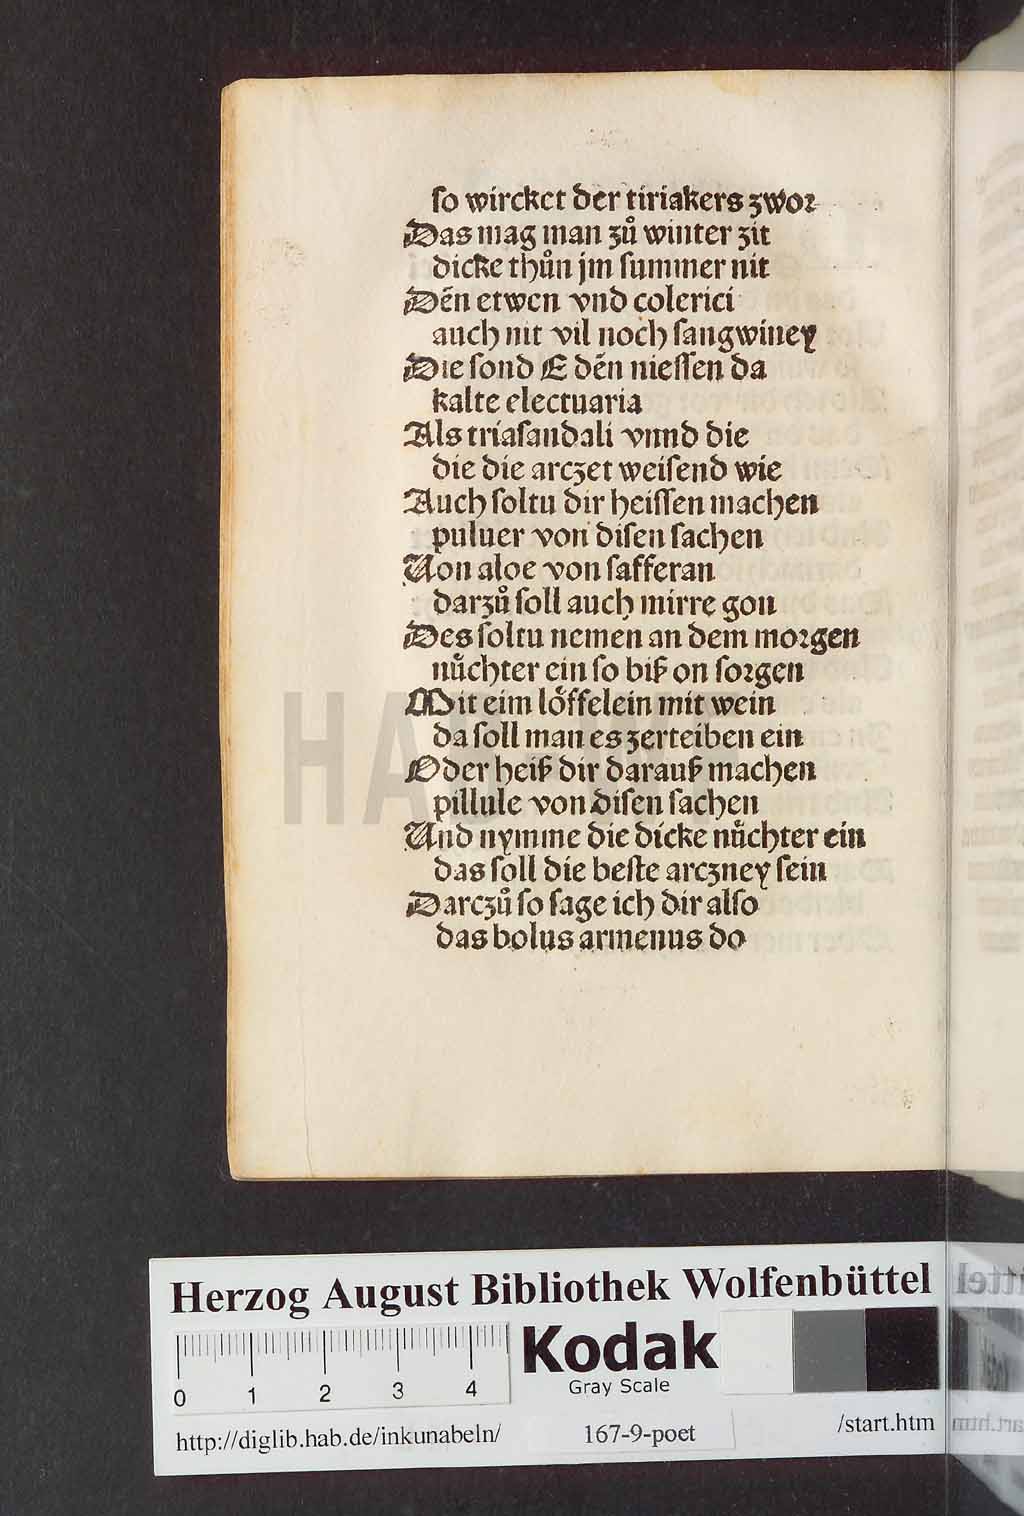 so wircket der tiriakers zwor
Das mag man zů winter zit
dicke thůn jm summer nit
Dēn etwen vnd colerici
auch nit vil noch sangwiney
Die sond E dēn niessen da
kalte electuaria
Als triasandali vnnd die
die die arczet weisend wie
Auch soltu dir heissen machen
puluer von disen sachen
Uon aloe von safferan
darzů soll auch mirre gon
Des soltu nemen an dem morgen
nůchter ein so biß on sorgen
Mit eim löffelein mit wein
da soll man es zerteiben ein
Oder heiß dir darauß machen
pillule von disen sachen
Und nymme die dicke nůchter ein
das soll die beste arczney sein
Darczů so sage ich dir also
das bolus armenus do
HAB
Herzog August Bibliothek Wolfenbüttel
0 1 2 3 4
Kodak
Gray Scale
http://diglib.hab.de/inkunabeln/ 167-9-poet /start.htm